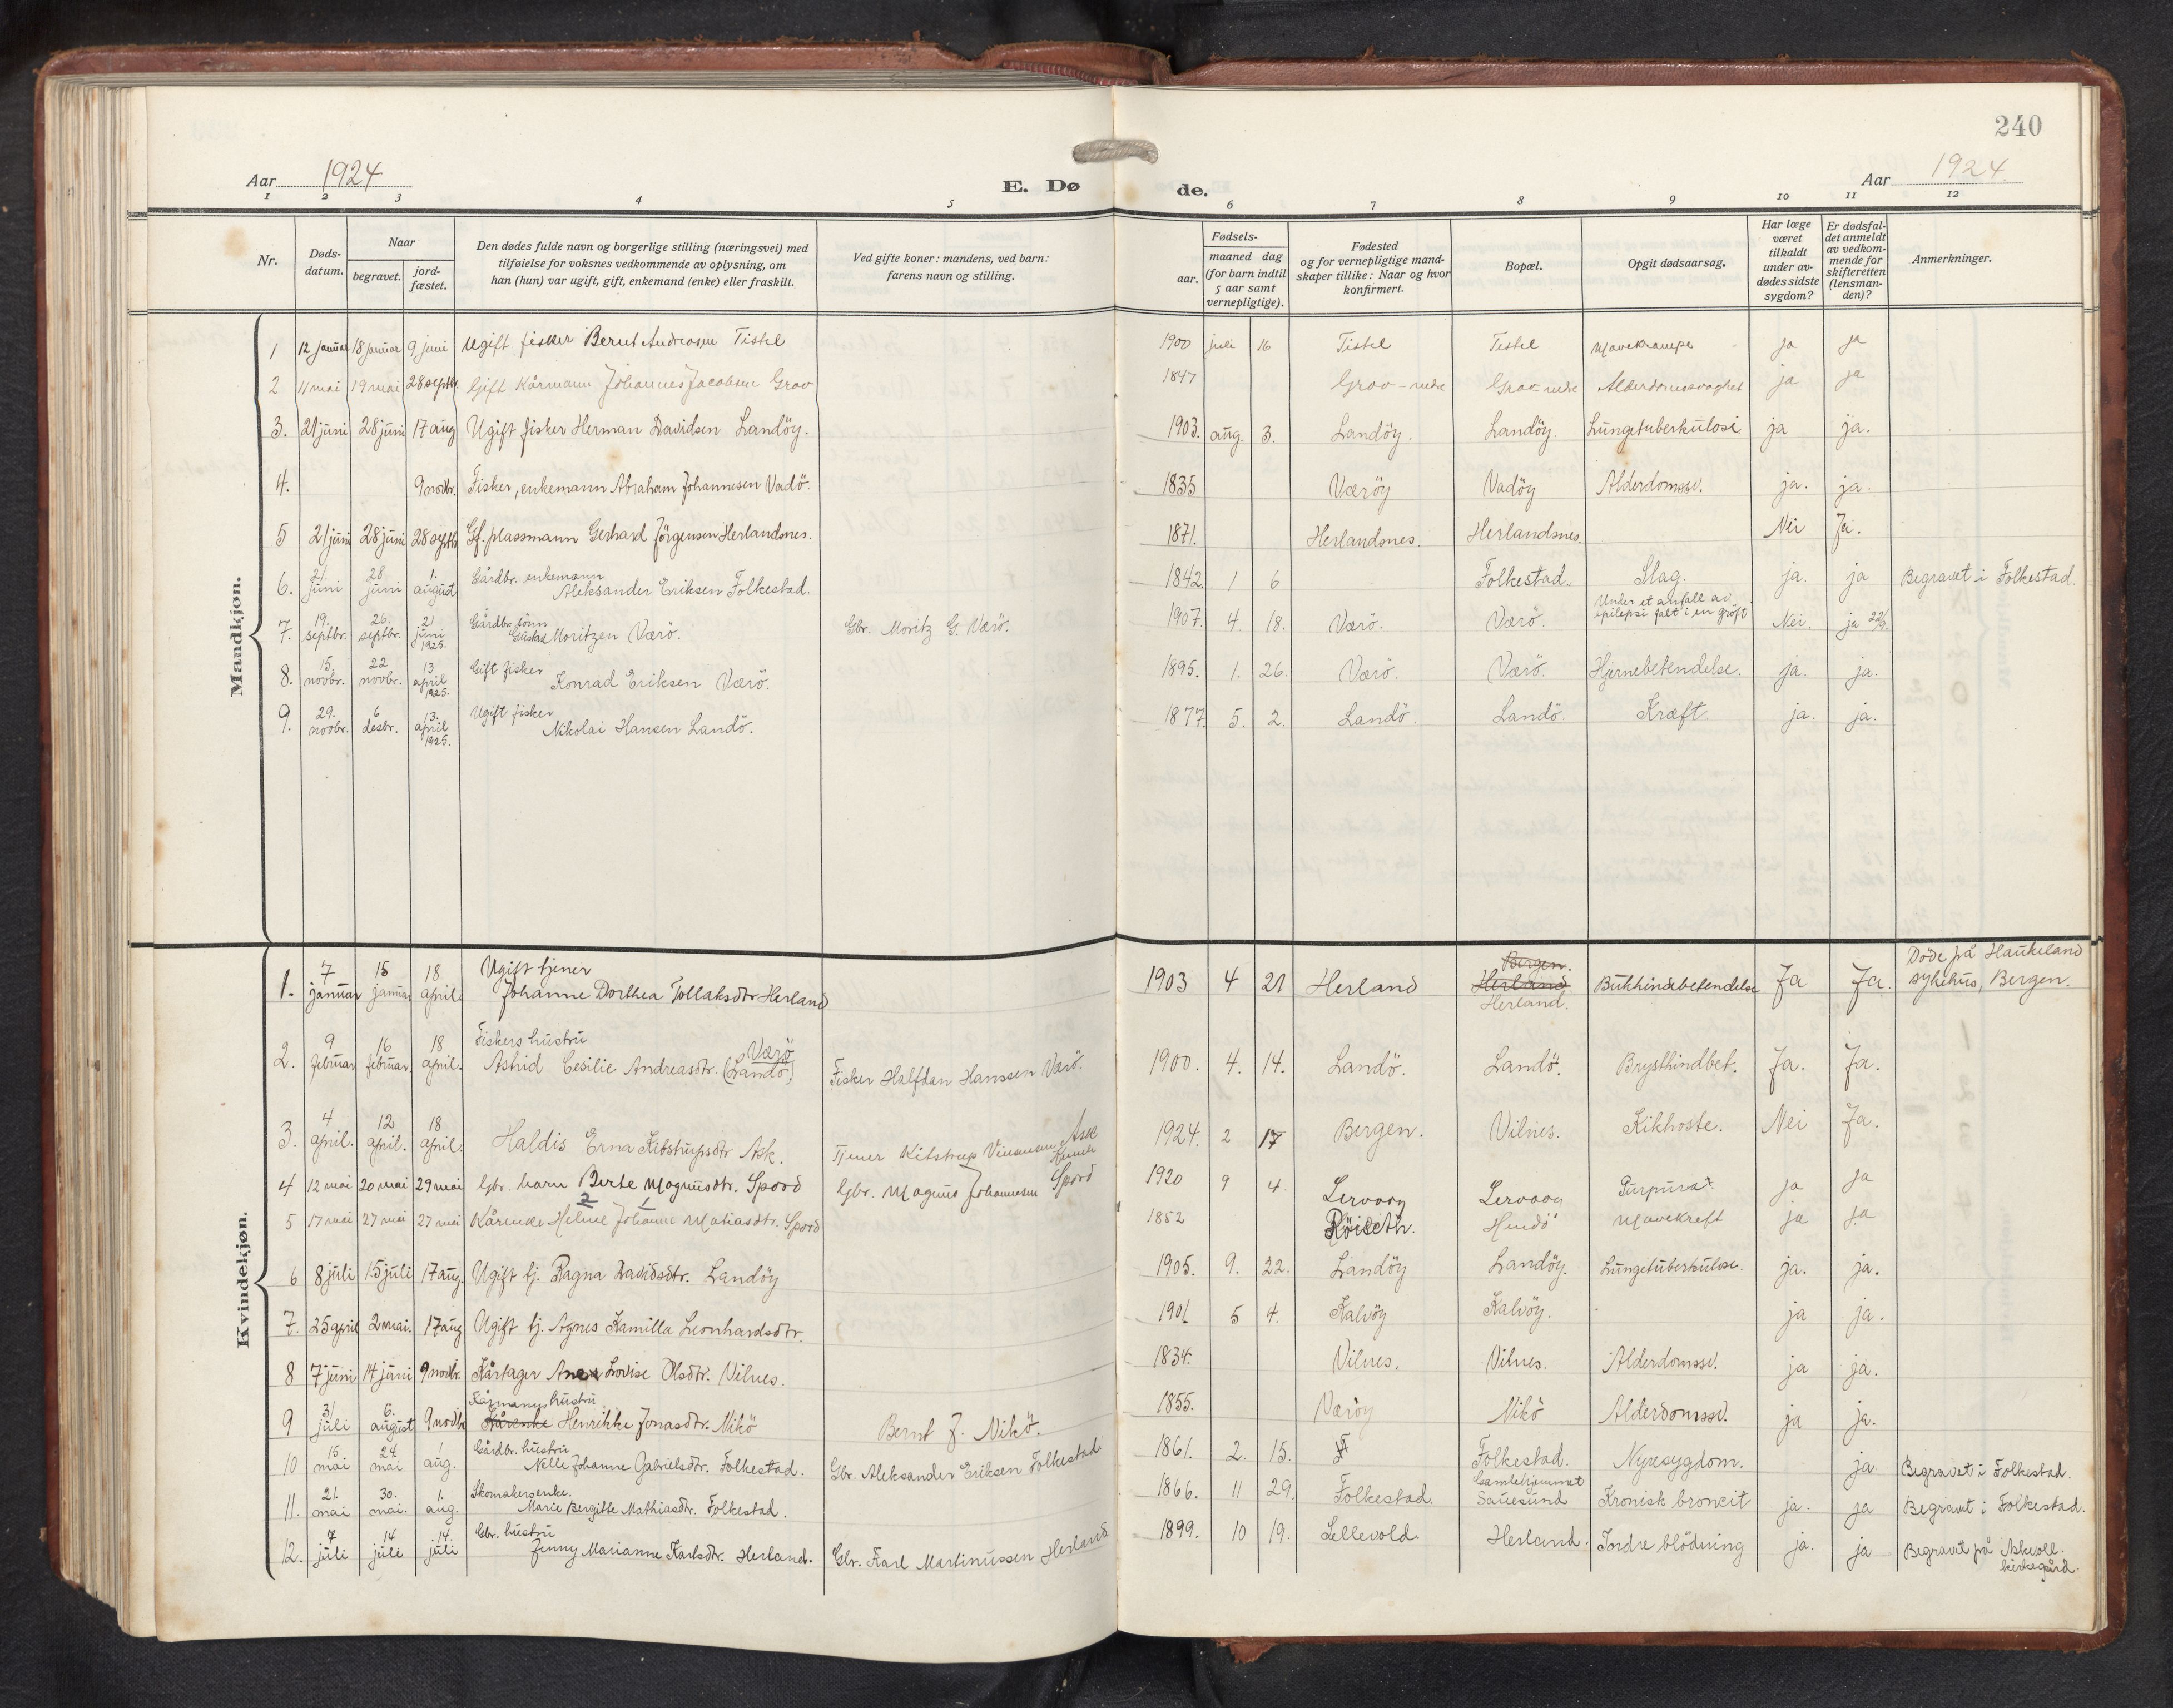 240
Aar 1924
E. Dø de.
Aar 1924.
1 2 3 4 5 6 7 8 9 10 11 12
Nr.
Døds-datum.
Naar
begravet.
jord-fæstet.
Den dødes fulde navn og borgerlige stilling (næringsvei) med
tilføielse for voksnes vedkommende av oplysning, om
han (hun) var ugift, gift, enkemand (enke) eller fraskilt.
Ved gifte koner: mandens, ved barn:
farens navn og stilling.
Fødsels-
aar.
maaned dag
(for barn indtil
5 aar samt
vernepligtige).
Fødested
og for vernepligtige mand-
skaper tillike: Naar og hvor
konfirmert.
Bopæl.
Opgit dødsaarsag.
Har læge
været
tilkaldt
under av-
dødes sidste
sygdom?
Er dødsfal-
det anmeldt
av vedkom-
mende for
skifteretten
(lensman-
den)?
Anmerkninger.
Mandkjøn.
1 12 januar 18 januar 9 juni Ugift fisker Bernt Andreasen Tistel 1900 juli 16 Tistel Tistel Mavekrampe ja ja
2 11 mai 19 mai 28 septbr. Gift Kårmann Johannes Jacobsen Grov 1847 Grov - nedre Grov nedre Alderdomssvaghet ja ja
3. 21 juni 28 juni 17 aug Ugift fisker Herman Davidsen Landöy. 1903. aug. 3. Landöy. Landöy. Lungetuberkulose ja ja.
4. 9 novbr. Fisker, enkemann Abraham Johannesen Vadö. 1835 Væröy Vadöy Alderdomssv. ja. ja.
5 21 juni 28 juni 28 septb Gf. plassmann Gerhard Jörgensen Herlandsnes. 1871. Herlandsnes. Herlandsnes. Nei Ja.
6. 21 juni 28 juni 1. august Gårdbr. enkemann Aleksander Eriksen Folkestad. 1842 1 6 Folkestad. Slag. ja. ja Begravet i Folkestad.
7. 19. septbr. 26. septbr. 21 juni 1925. Gårdbr. sönn Gustav Moritzen Værö. Gbr. Moritz G. Værö. 1907. 4. 18. Værö. Værö. Under et anfall av epilepsi falt i en gröft Nei. ja 22/9.
8. 15. novbr. 22 novbr. 13 april 1925. Gift fisker Konrad Eriksen Værö. 1895. 1. 26. Værö. Værö. Hjernebetendelse. ja. ja.
9. 29. novbr. 6 desbr. 13. april 1925. Ugift fisker Nikolai Hansen Landö. 1877. 5. 2. Landö. Landö. Kræft. ja. ja.
Kvindekjøn.
1. 7 januar 15 januar 18 april. Ugift tjener Johanne Dorthea Tollaksdtr Herland 1903 4 21 Herland Bergen. Herland Herland. Bukhindebetendelse Ja Ja. Döde på Haukeland sykehus, Bergen.
2. 9 februar 16 februar. 18 april. Fiskers hustru Astrid Cesilie Andreasdtr. Værö (Landö) Fisker Halfdan Hanssen Værö. 1900. 4. 14. Landö. Landö. Brysthindbet. Ja. Ja.
3. 4 april. 12 april. 18 april. Haldis Erna Kitstrupsdtr Ask. Tjener Kitstrup Ask 1924. 2 17 Bergen. Vilnes. Kikhoste. Nei Ja.
4 12 mai 20 mai 29 mai Gbr. barn Berte Magnusdtr. Spord Gbr. Magnus Johannesen Spord 1920 9 4. Lervaag Lervaag Purpura ja ja
5 17 mai 27 mai 27 mai Kårenke Heline Johanne Matiasdtr. Spord 2 1 1852 Röiseth. Hendö Mavekreft ja ja
6 8 juli 15 juli 17 aug. Ugift tj. Ragna Davidsdtr. Landöy 1905. 9. 22. Landöy Landöy. Lungetuberkulose. ja. ja.
7. 25 april 2 mai. 17 aug Ugift tj. Agnes Kamilla Leonhardsdtr. 1901 5 4. Kalvöy Kalvöy. ja ja.
8 7 juni 14 juni 9 novbr. Kårtager Ane Lovise Olsdtr. Vilnes. 1834. Vilnes. Vilnes. Alderdomssv. ja ja.
9 31 juli 6. august 9 novbr Kårmanns hustru Kårenke Henrikke Jonasdtr. Nikö Bernt J. Nikö. 1855. Væröy Nikö Alderdomssv. ja ja.
10 15. mai 24. mai 1 aug. Gårdbr. hustru Nelle Johanne Gabrielsdtr. Folkestad. Gbr. Aleksander Eriksen Folkestad 1861. 2. 15. Folkestad. Nyresygdom. ja Begravet i Folkestad.
11. 21. mai 30. mai. 1. aug. Skomakerenke. Marie Bergitte Mathiasdtr. Folkestad. 1866. 11 29. Folkestad. Gamlehjemmet Sauesund Kronisk broncit ja. ja Begravet i Folkestad.
12. 7 juli 14 juli 14. juli Gbr. hustru Jenny Marianne Karlsdtr. Herland. Gbr. Karl Martinussen Herland 1899. 10 19. Lellevold. Herland. Indre blödning ja. ja Begravet på Askvoll kirkegård.